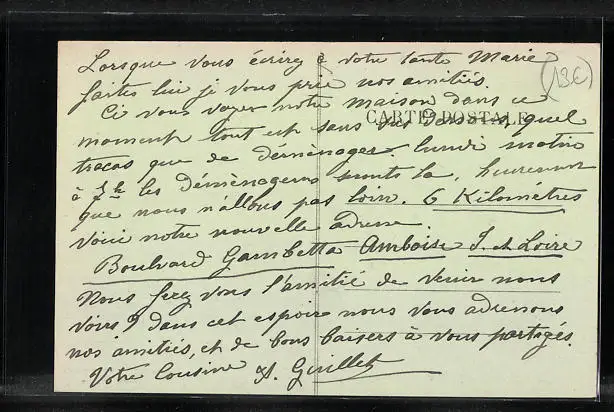 Lorsque vous écrirez à votre tante Marie
faites lui je vous prie nos amitiés.
Ci vous voyez notre maison dans ce
CARTE POSTALE
moment tout est sans dessus dessous, quel
tracas que de démènager. lundi matin
à 7h les démènageurs sont la, heureusement
que nous n'allons pas loin. 6 Kilomètres
voici notre nouvelle adresse.
Boulvard Gambetta = Amboise I. et Loire
Nous ferez vous l'amitié de venir nous
voirs? dans cet espoire nous vous adressons
nos amitiés, et de bons baisers à vous partagés.
Votre Cousine G. Guillet
13€